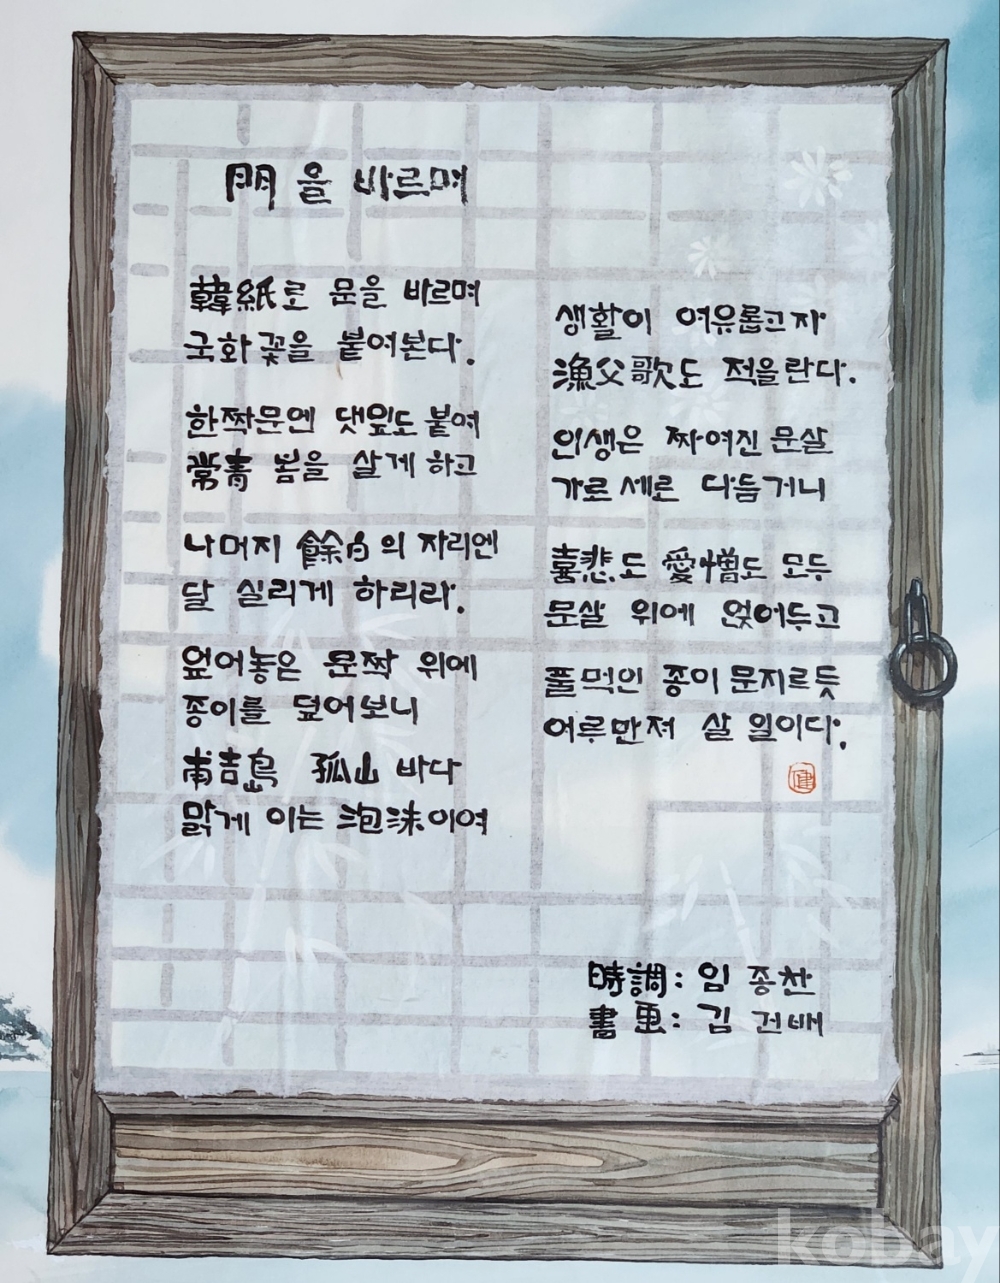 門을 바르며
韓紙로 문을 바르며
국화꽃을 붙여본다.
한짝문엔 댓잎도 붙여
常靑 봄을 살게 하고
나머지 餘白의 자리엔
달 실리게 하리라.
엎어놓은 문짝 위에
종이를 덮어보니
甫吉島 孤山 바다
맑게 이는 泡沫이여
생활이 여유롭고자
漁父歌도 적을란다.
인생은 짜여진 문살
가로 세로 다듬거니
喜悲도 愛憎도 모두
문살 위에 얹어두고
풀먹인 종이 문지르듯
어루만져 살 일이다.
健
時調: 임종찬
書画: 김건배
kobay